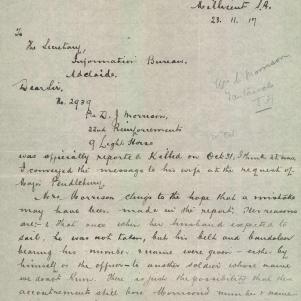 Millicent S.A.
23. 11. 17
To
The Secretary,
Information Bureau,
Adelaide.
Dear Sir,
No. 2939
Pte D. J. Morrison,
22nd Reinforcements
9 Light Horse
was officially reported Killed on Oct 31, I think it was
I conveyed the message to his wife at the request of
Major Pendlebury.
Mrs. Morrison clings to the hope that a mistake
may have been made in the report. Her reasons
are:- That once when her husband expected to
sail, he was not taken, but his belt and bandolier
bearing his number & name were given - either by
himself or the opposite another soldier whose name
we don't know. There is just the possibility that the
accoutrements still bore Morrison's number & name
Mrs Morrison